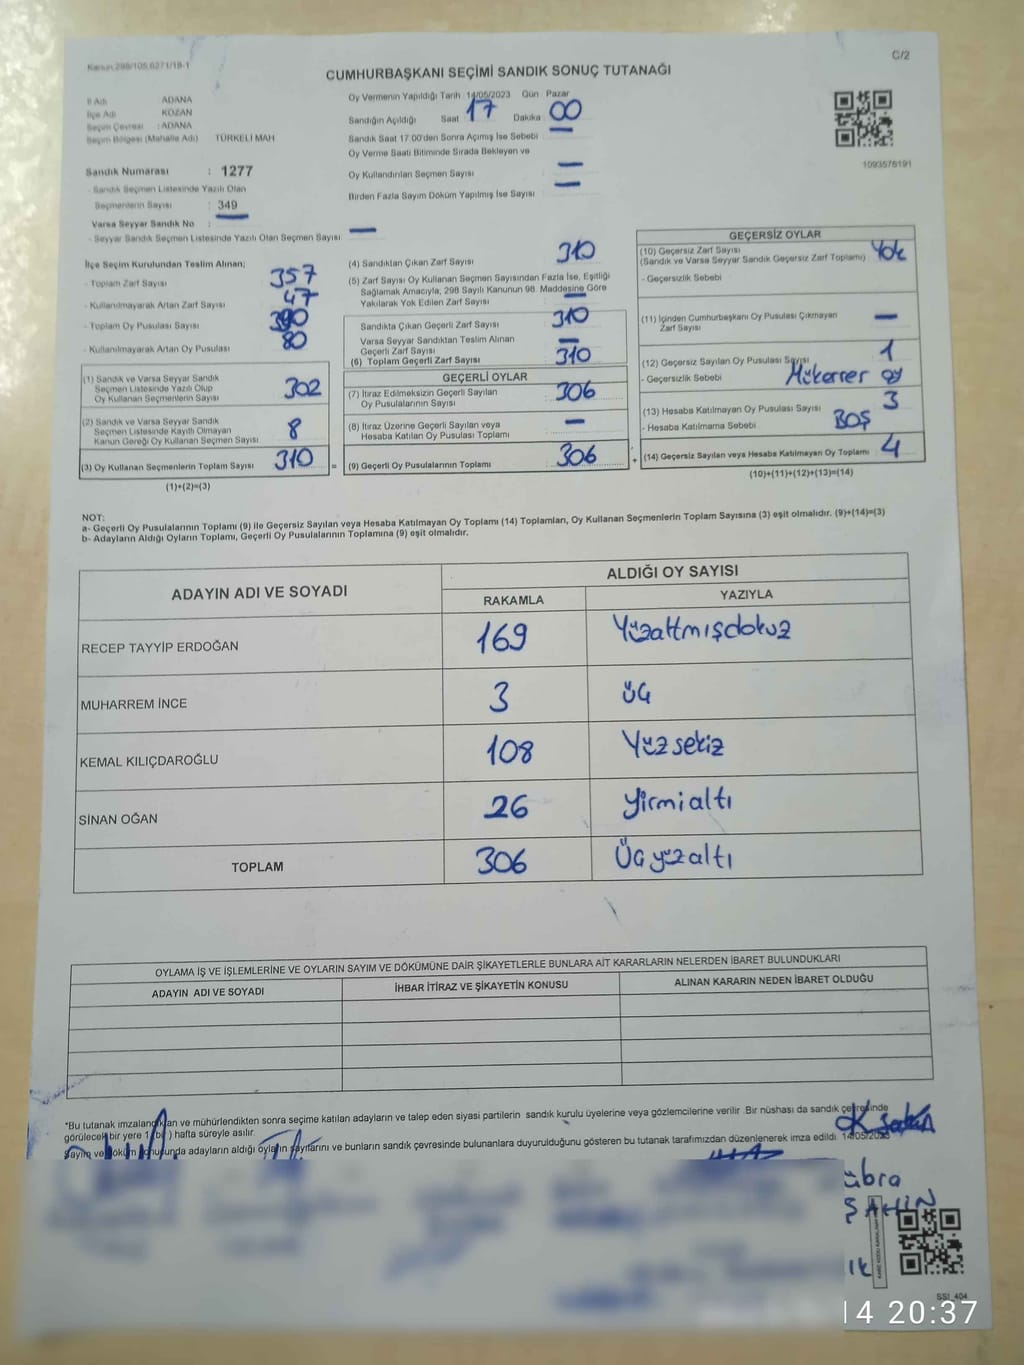 Kanun:298/105,6271/18-1
C/2
CUMHURBAŞKANI SEÇİMİ SANDIK SONUÇ TUTANAĞI
İl Adı : ADANA
İlçe Adı : KOZAN
Seçim Çevresi : ADANA
Seçim Bölgesi (Mahalle Adı) : TÜRKELİ MAH
Sandık Numarası : 1277
- Sandık Seçmen Listesinde Yazılı Olan
Seçmenlerin Sayısı : 349
Varsa Seyyar Sandık No : —
- Seyyar Sandık Seçmen Listesinde Yazılı Olan Seçmen Sayısı : —
Oy Vermenin Yapıldığı Tarih : 14/05/2023 Gün : Pazar
Sandığın Açıldığı Saat : 17 Dakika : 00
Sandık Saat 17:00'den Sonra Açılmış İse Sebebi : —
Oy Verme Saati Bitiminde Sırada Bekleyen ve
Oy Kullandırılan Seçmen Sayısı : —
Birden Fazla Sayım Döküm Yapılmış İse Sayısı : —
1093576191
İlçe Seçim Kurulundan Teslim Alınan;
- Toplam Zarf Sayısı : 357
- Kullanılmayarak Artan Zarf Sayısı : 47
- Toplam Oy Pusulası Sayısı :
- Kullanılmayarak Artan Oy Pusulası : 80
(1) Sandık ve Varsa Seyyar Sandık
Seçmen Listesinde Yazılı Olup
Oy Kullanan Seçmenlerin Sayısı : 302
(2) Sandık ve Varsa Seyyar Sandık
Seçmen Listesinde Kayıtlı Olmayan
Kanun Gereği Oy Kullanan Seçmen Sayısı : 8
(3) Oy Kullanan Seçmenlerin Toplam Sayısı : 310
(1)+(2)=(3)
(4) Sandıktan Çıkan Zarf Sayısı : 310
(5) Zarf Sayısı Oy Kullanan Seçmen Sayısından Fazla İse, Eşitliği
Sağlamak Amacıyla, 298 Sayılı Kanunun 98. Maddesine Göre
Yakılarak Yok Edilen Zarf Sayısı : —
Sandıkta Çıkan Geçerli Zarf Sayısı : 310
Varsa Seyyar Sandıktan Teslim Alınan
Geçerli Zarf Sayısı : —
(6) Toplam Geçerli Zarf Sayısı : 310
GEÇERLİ OYLAR
(7) İtiraz Edilmeksizin Geçerli Sayılan
Oy Pusulalarının Sayısı : 306
(8) İtiraz Üzerine Geçerli Sayılan veya
Hesaba Katılan Oy Pusulası Toplamı : —
= (9) Geçerli Oy Pusulalarının Toplamı : 306
GEÇERSİZ OYLAR
(10) Geçersiz Zarf Sayısı
(Sandık ve Varsa Seyyar Sandık Geçersiz Zarf Toplamı) : Yok
- Geçersizlik Sebebi :
(11) İçinden Cumhurbaşkanı Oy Pusulası Çıkmayan
Zarf Sayısı : —
(12) Geçersiz Sayılan Oy Pusulası Sayısı : 1
- Geçersizlik Sebebi : Mükerrer oy
(13) Hesaba Katılmayan Oy Pusulası Sayısı : 3
- Hesaba Katılmama Sebebi : BOŞ
+ (14) Geçersiz Sayılan veya Hesaba Katılmayan Oy Toplamı : 4
(10)+(11)+(12)+(13)=(14)
NOT:
a- Geçerli Oy Pusulalarının Toplamı (9) ile Geçersiz Sayılan veya Hesaba Katılmayan Oy Toplamı (14) Toplamları, Oy Kullanan Seçmenlerin Toplam Sayısına (3) eşit olmalıdır. (9)+(14)=(3)
b- Adayların Aldığı Oyların Toplamı, Geçerli Oy Pusulalarının Toplamına (9) eşit olmalıdır.
ADAYIN ADI VE SOYADI
ALDIĞI OY SAYISI
RAKAMLA YAZIYLA
RECEP TAYYİP ERDOĞAN 169 Yüzaltmışdokuz
MUHARREM İNCE 3 üç
KEMAL KILIÇDAROĞLU 108 Yüzsekiz
SİNAN OĞAN 26 yirmialtı
TOPLAM 306 Üçyüzaltı
OYLAMA İŞ VE İŞLEMLERİNE VE OYLARIN SAYIM VE DÖKÜMÜNE DAİR ŞİKAYETLERLE BUNLARA AİT KARARLARIN NELERDEN İBARET BULUNDUKLARI
ADAYIN ADI VE SOYADI İHBAR İTİRAZ VE ŞİKAYETİN KONUSU ALINAN KARARIN NEDEN İBARET OLDUĞU
*Bu tutanak imzalandıktan ve mühürlendikten sonra seçime katılan adayların ve talep eden siyasi partilerin sandık kurulu üyelerine veya gözlemcilerine verilir. Bir nüshası da sandık çevresinde
görülecek bir yere 1 (bir) hafta süreyle asılır.
Sayım ve döküm sonucunda adayların aldığı oyların sayılarını ve bunların sandık çevresinde bulunanlara duyurulduğunu gösteren bu tutanak tarafımızdan düzenlenerek imza edildi. 14/05/2023
übra
ŞAHİN
SSI_404
14 20:37